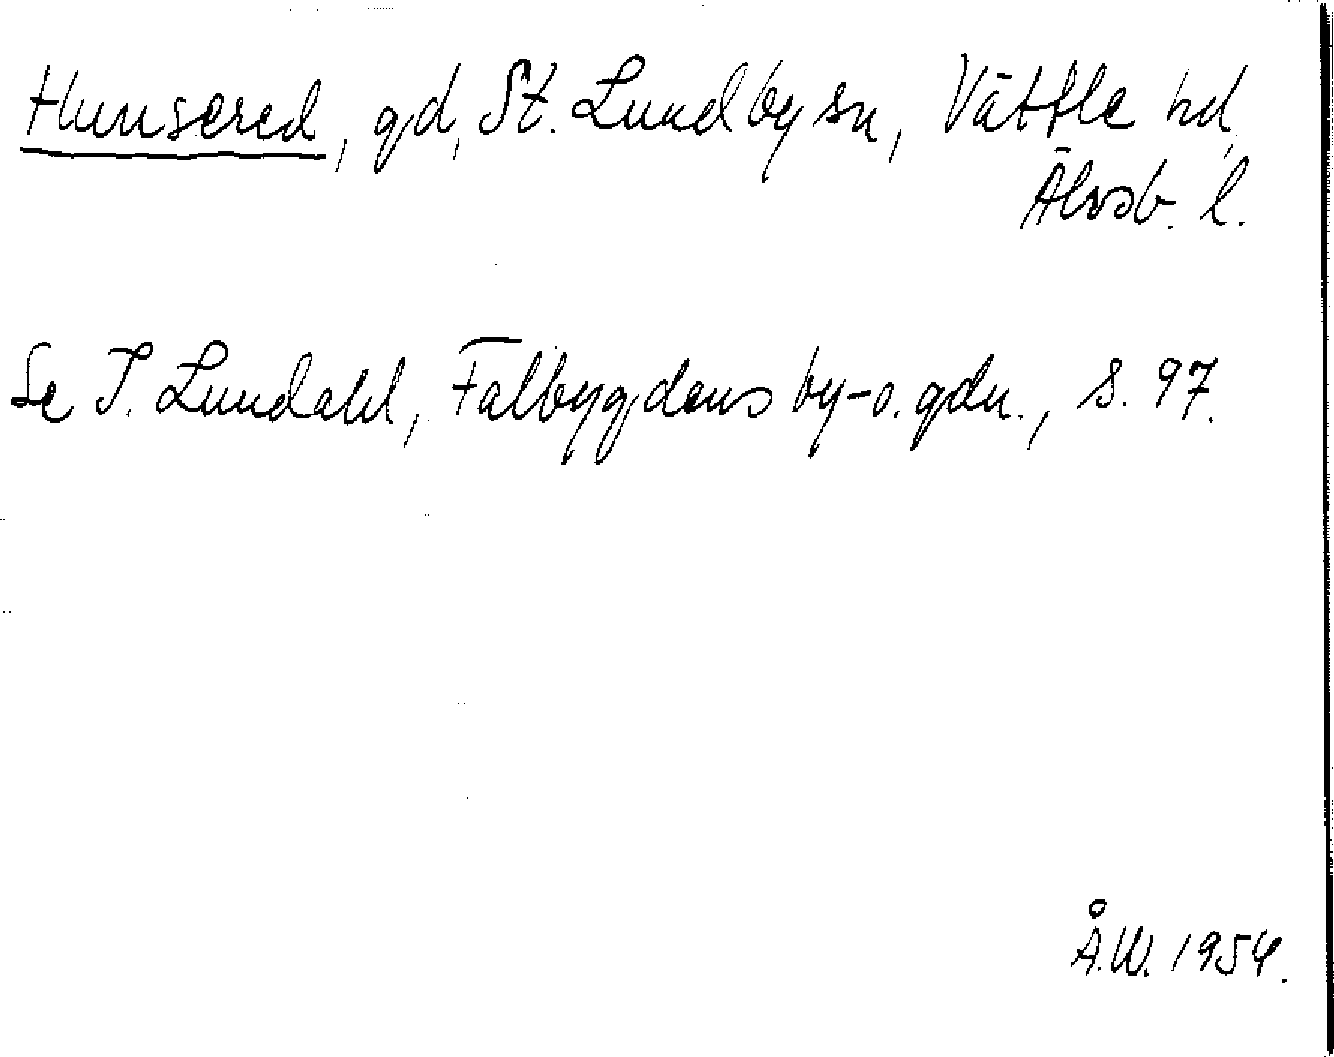 Hunsered, gd, St. Lundby sn, Vättle hd,
Älvsb. l.
Se I. Lundahl, Falbygdens by- o. gdn., s. 97.
Å.W. 1954.